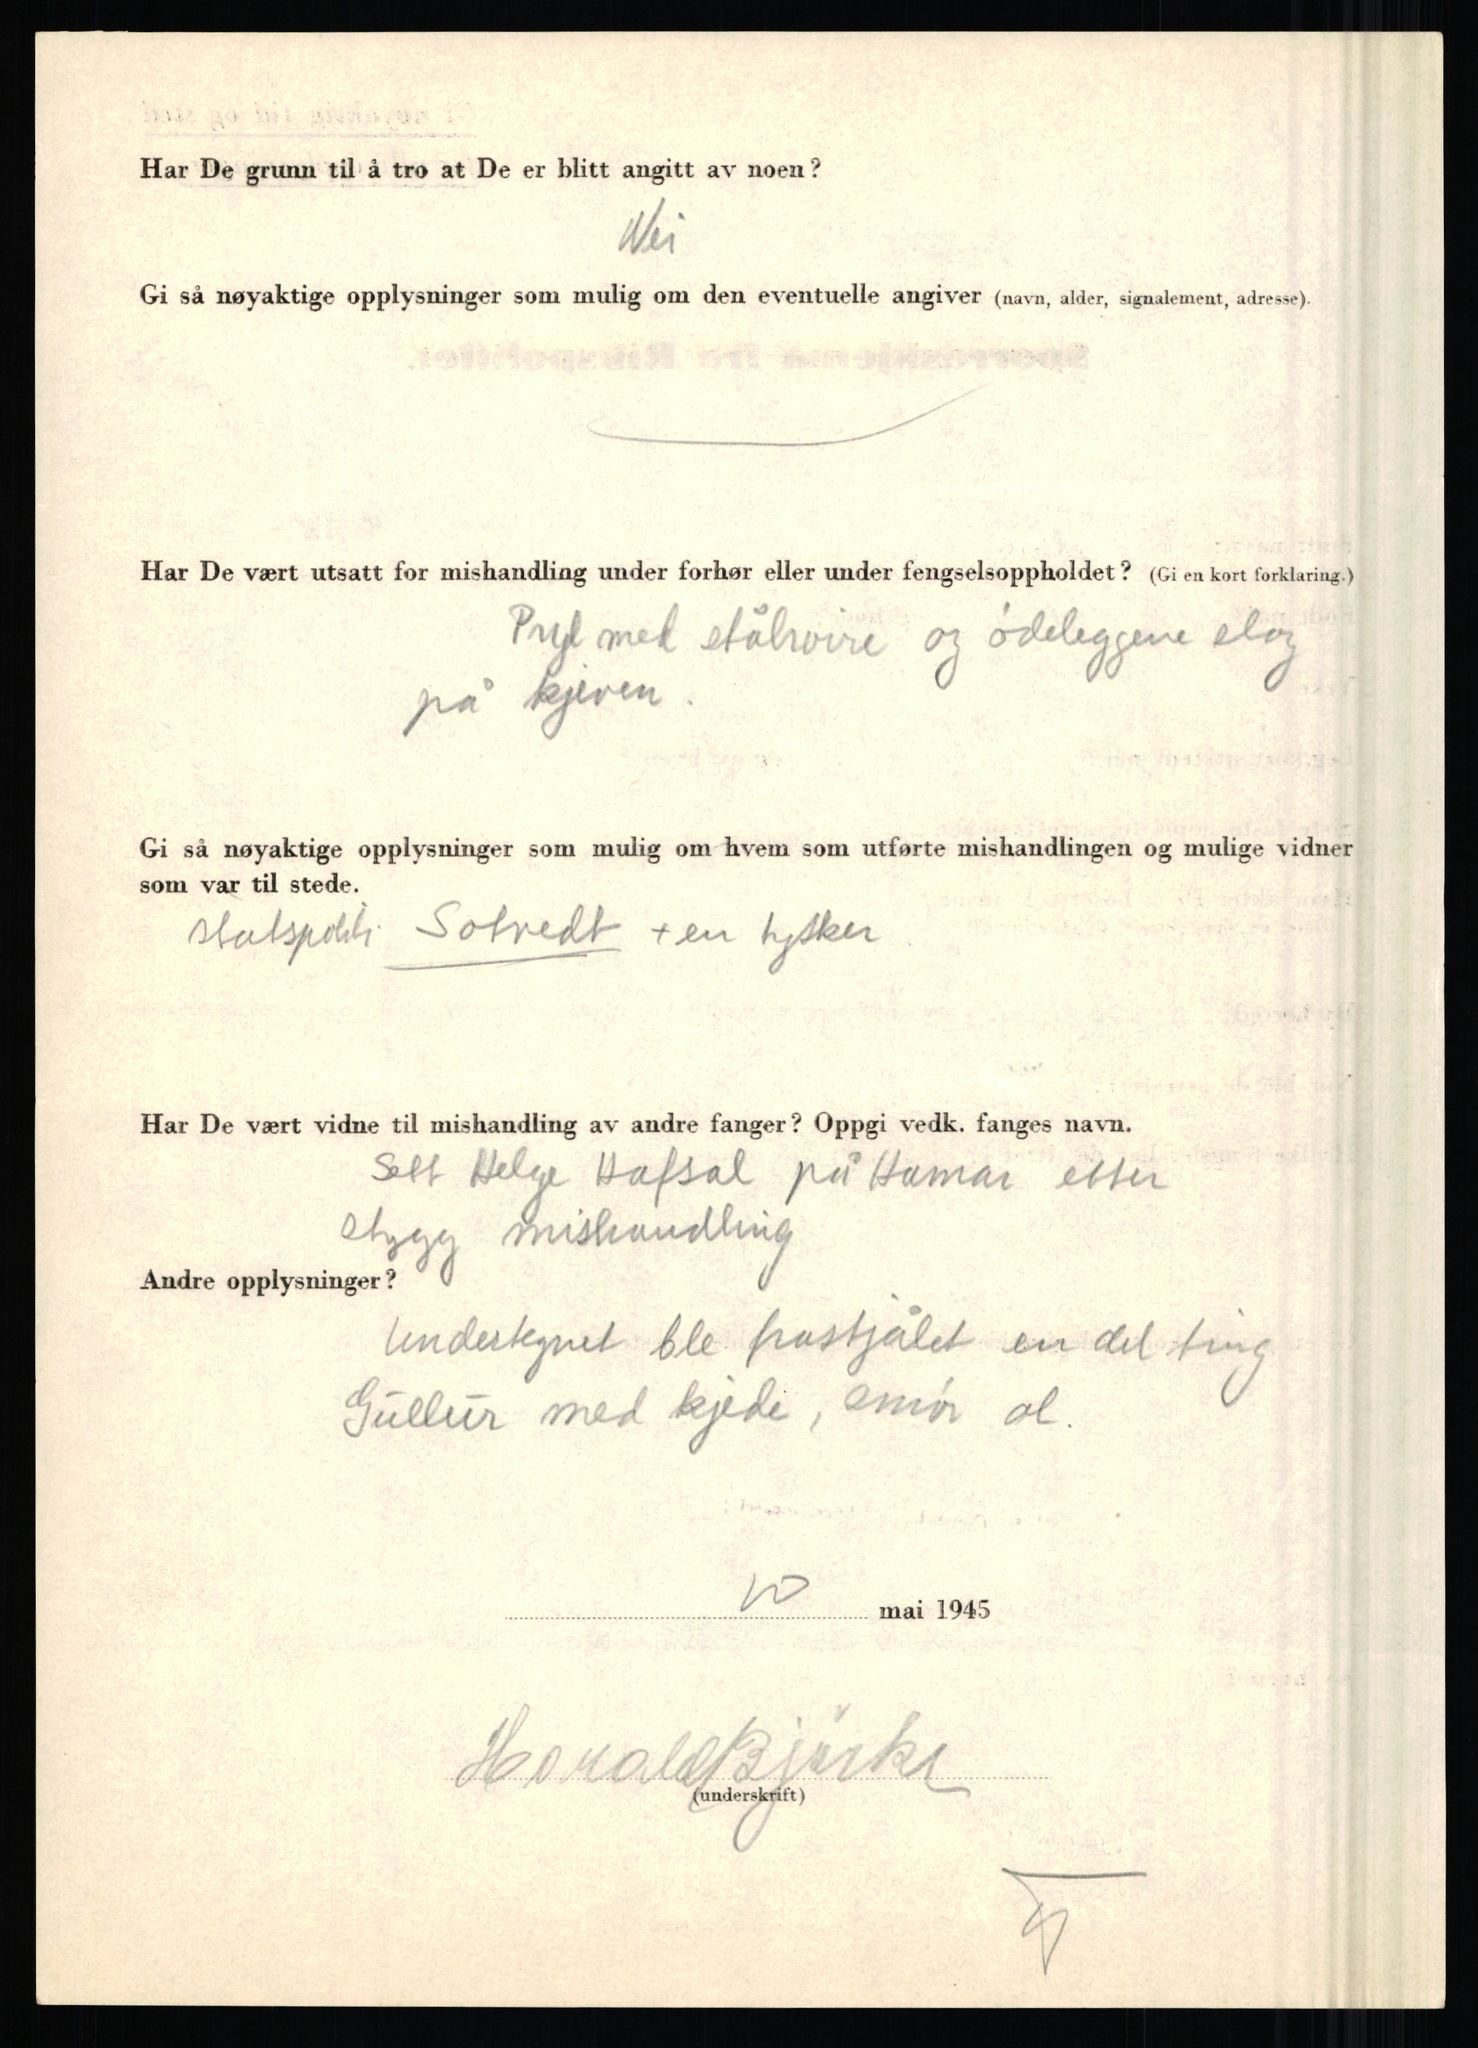 Har De grunn til å tro at De er blitt angitt av noen?
Nei
Gi så nøyaktige opplysninger som mulig om den eventuelle angiver (navn, alder, signalement, adresse).
Har De vært utsatt for mishandling under forhør eller under fengselsoppholdet? (Gi en kort forklaring.)
Pryl med stålwire og ödeleggene slag
på kjeven.
Gi så nøyaktige opplysninger som mulig om hvem som utførte mishandlingen og mulige vidner
som var til stede.
statspoliti Solvedt + en tysker
Har De vært vidne til mishandling av andre fanger? Oppgi vedk. fanges navn.
Sett Helge Hafsal på Hamar etter
stygg mishandling
Andre opplysninger?
Undertegnet ble frastjålet en del ting
Gullur med kjede, smör ol.
10 mai 1945
Harald Bjørke
(underskrift)